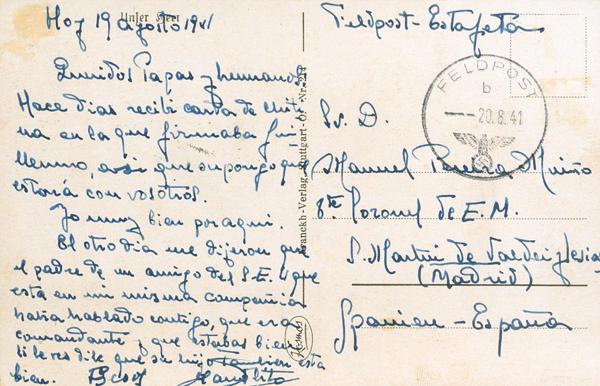 Unser Heer
Hoy 19 agosto 1941
Queridos Papas y hermanos
Hace dias recibi carta de
en la que firmaba
así que supongo que
estaría con vosotros.
Yo muy bien por aqui.
El otro dia me dijeron que
el padre de un amigo del S.E.U que
esta en mi misma compañia
habia hablado contigo, que era
comandante y que estabas bien
si le ves dile que su hijo tambien esta
bien. Besos Manolito
Franckh-Verlag Stuttgart-O. Nr. 214
Kosmos
Feldpost-Estafeta
FELDPOST
b
--20.8.41
Sr. D.
Manuel Muiño
Coronel de E.M.
S. Martin de Valdeiglesias
(Madrid)
Spanien - España